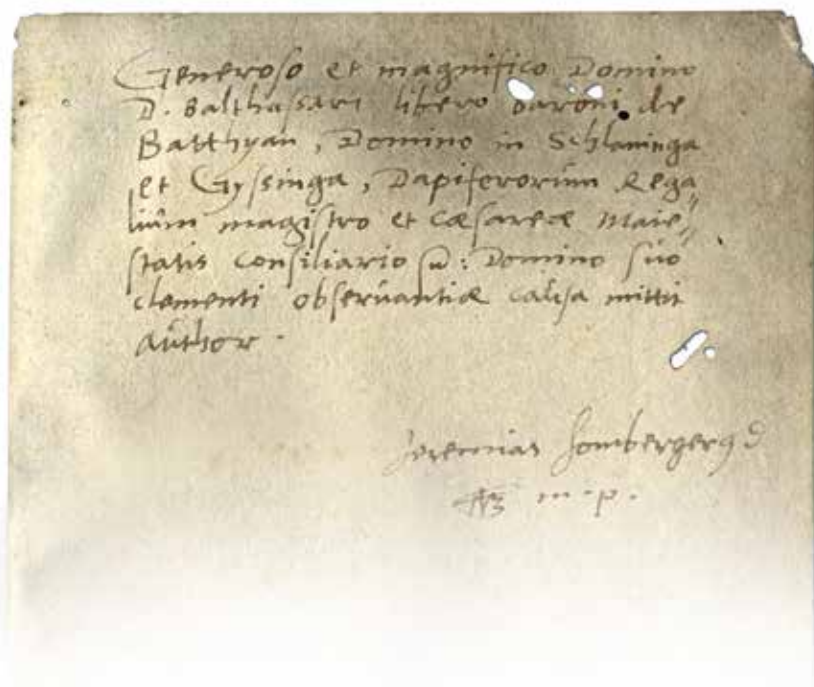 Generoso et magnifico Domino
D. Balthassari libero baroni de
Batthyan, Domino in Schlaninga
et Gyssinga, Dapiferorum Rega„
lium magistro et Cæsareæ Maie„
statis Consiliario : Domino suo
clementi observantiæ causa mittit
author.
Jeremias Hombergerus D
m.p.